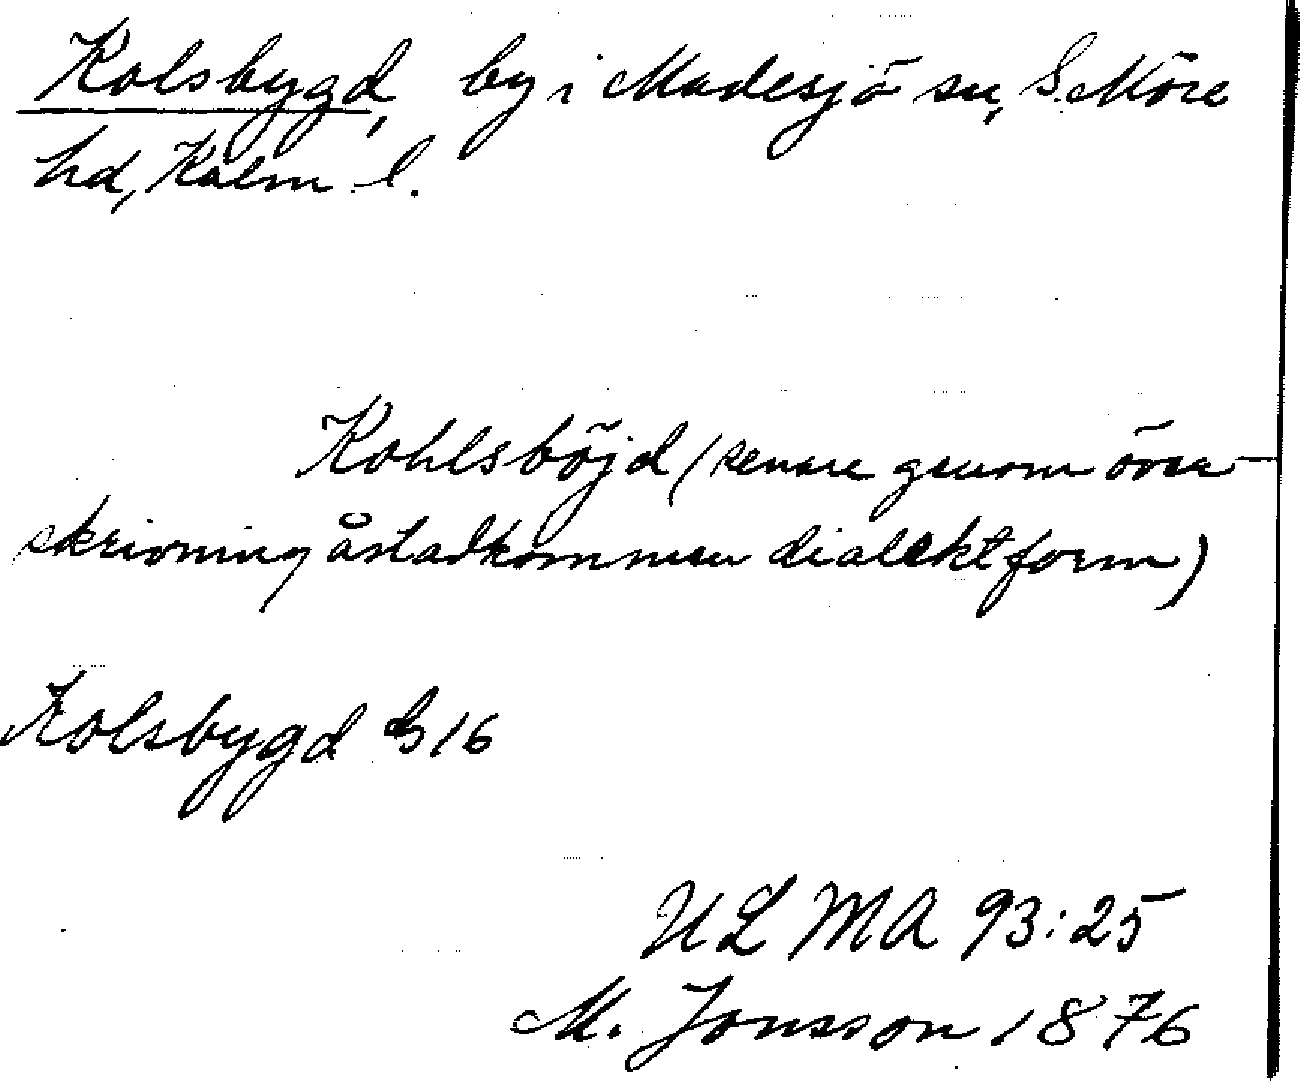 Kolsbygd, by i Madesjö sn, S. Möre
hd, Kalm l.
Kohlsböjd (senare genom över-
skrivning åstadkommen dialektform)
Kolsbygd G 16
ULMA 93:25
M. Jonsson 1876